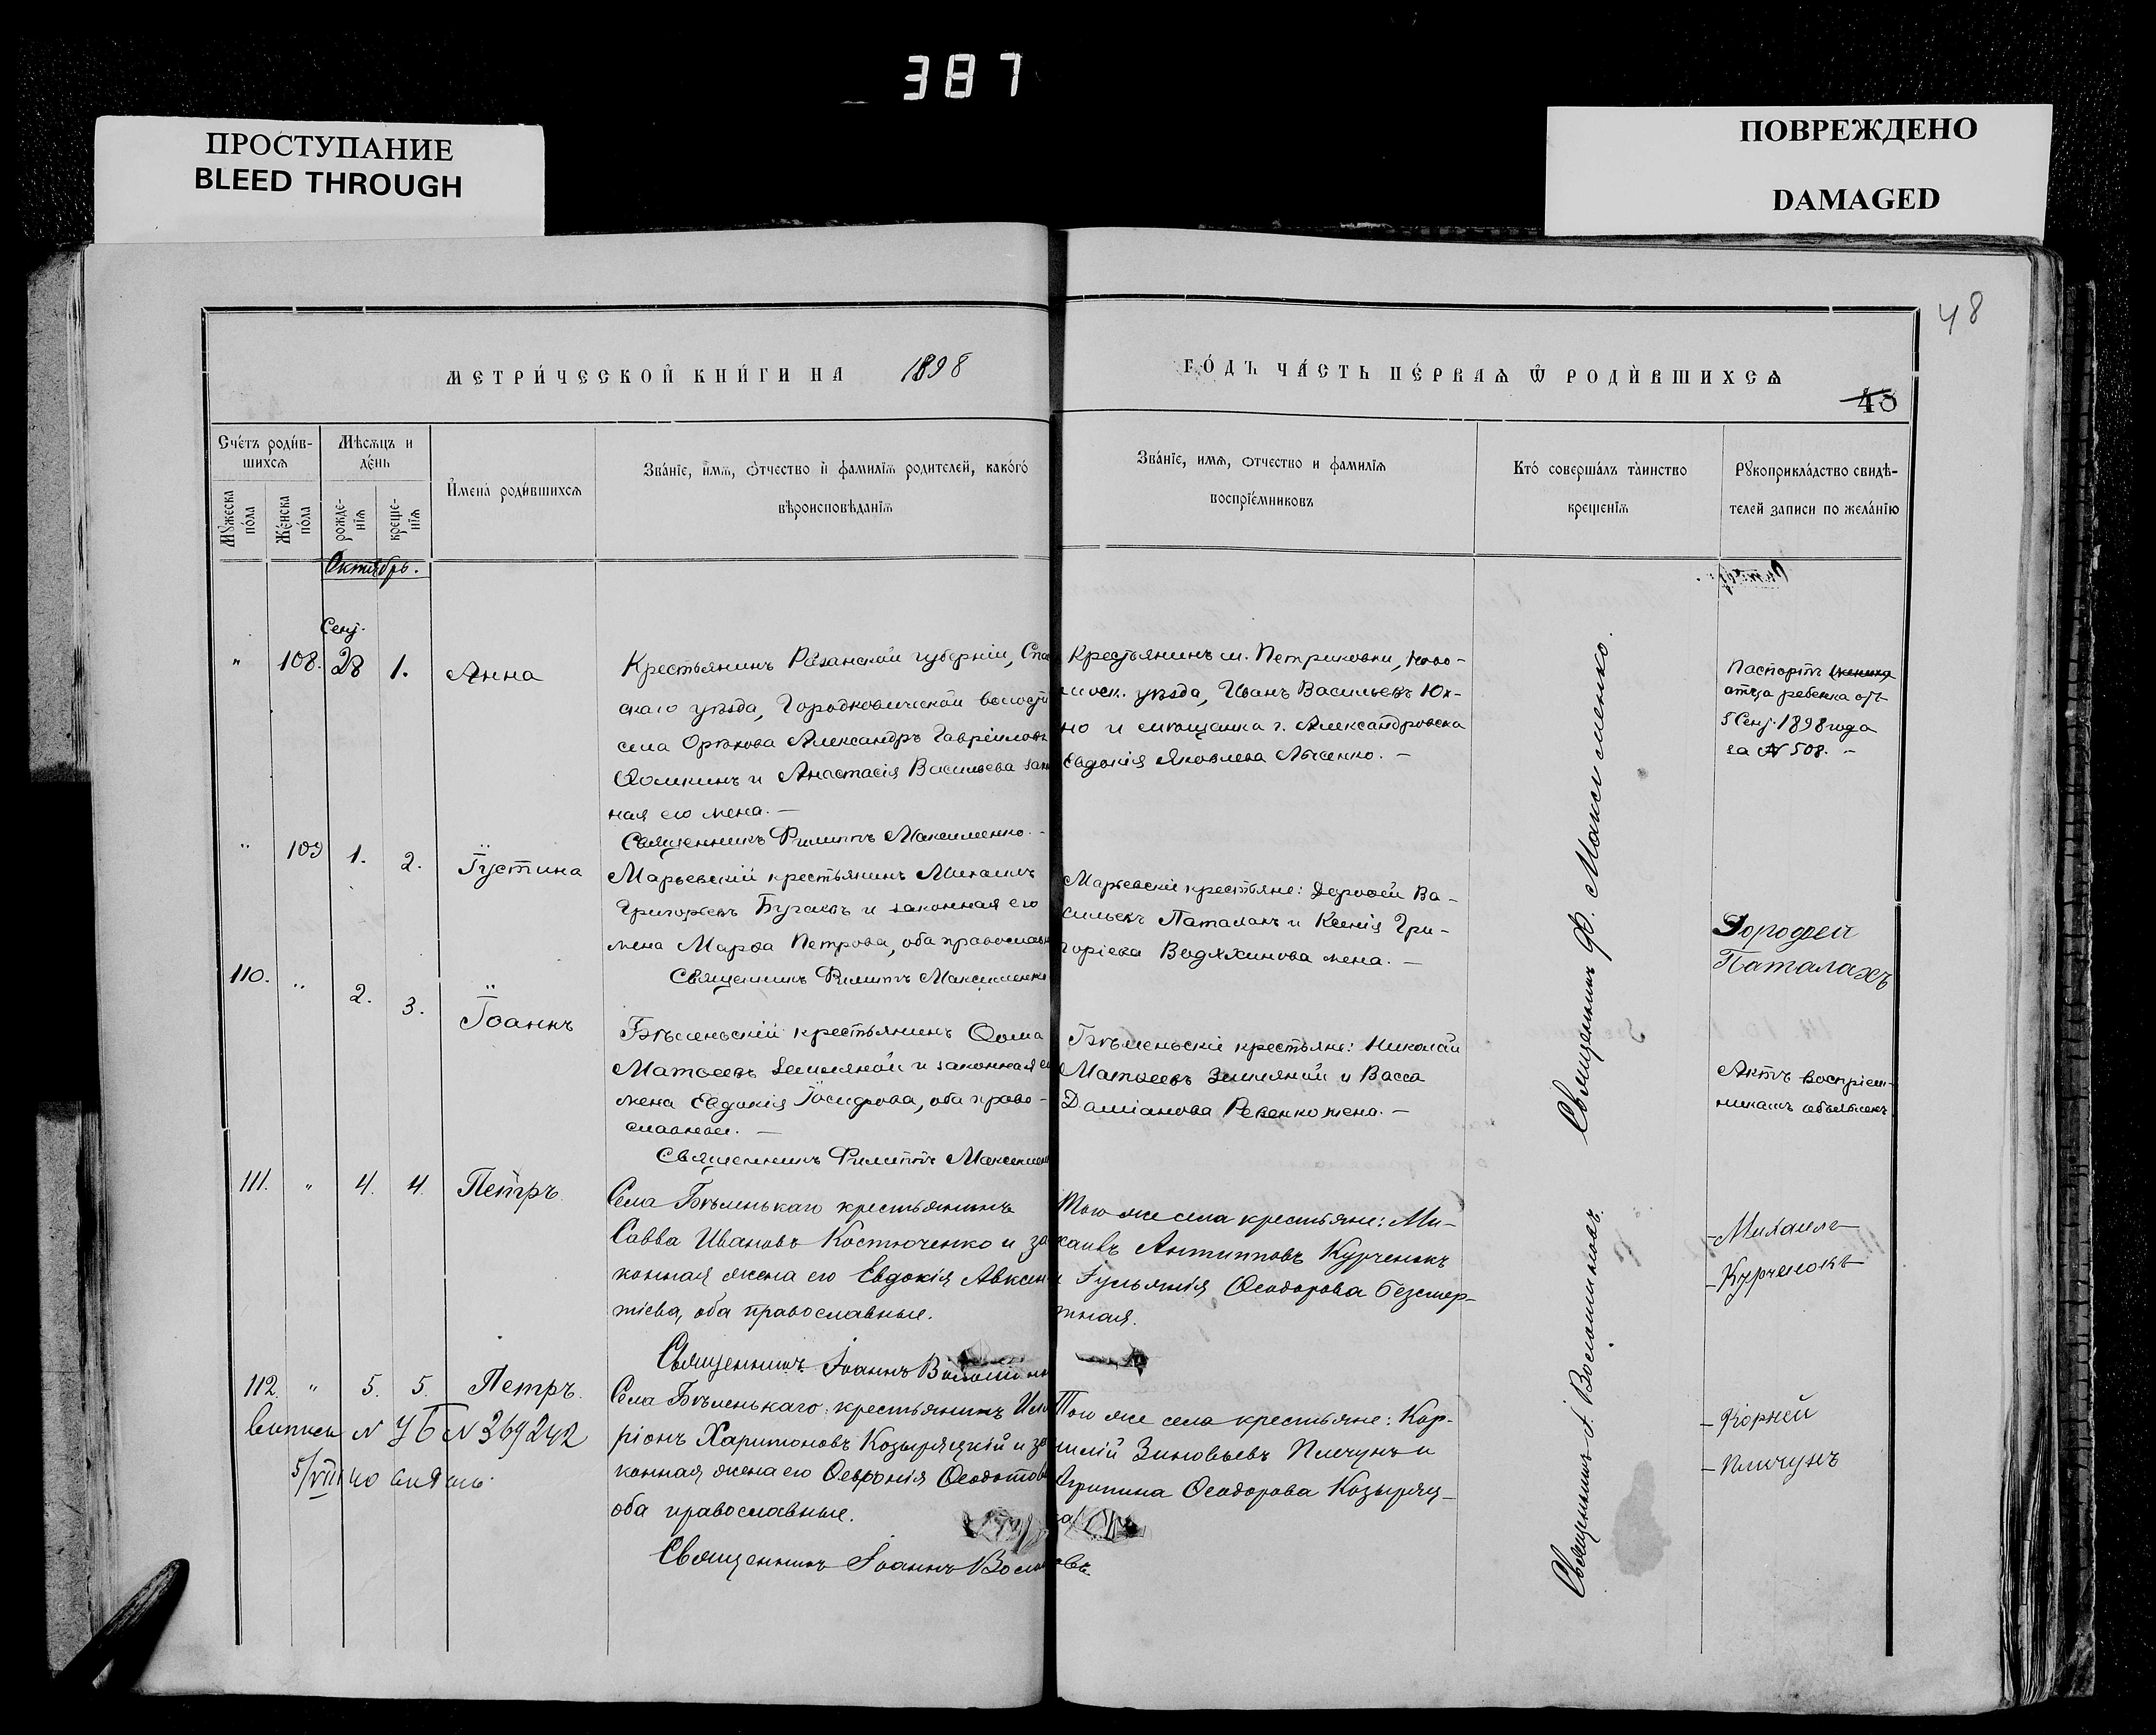 387
ПРОСТУПАНИЕ
BLEED THROUGH
ПОВРЕЖДЕНО
DAMAGED
48
МЕТРИ́ЧЕСКОЙ КНИ́ГИ НА 1898
ГО́ДЪ ЧА́СТЬ ПЕ́РВАѦ Ѿ РОДИ́ВШИХСѦ
Сче́тъ роди́в-
шихсѧ
Мѣсѧцъ и
де́нь
Мꙋ́жеска
по́ла
Же́нска
по́ла
рожде-
нїѧ
креще-
нїѧ
И҆мена̀ роди́вшихсѧ
Зва́нїе, и҆́мѧ, ѻ҆́тчество и҆ фамилїѧ родителей, како́гѡ
вѣроисповѣданїѧ
Зва́нїе, имѧ, ѻтчество и фамилїѧ
воспрїе́мниковъ
Кто́ соверша́лъ та̀инство
крещенїѧ
Рꙋкоприкла́дство свидѣ-
телей записи по жела́нїю
Октябрь.
Сент.
" 108. 28 1. Анна
Крестьянинъ Рязанской губерніи, Спас
скаго уѣзда, Городковической волости
села Орѣхова Александръ Гавріиловъ
Ѳомкинъ и Анастасія Васильева закон
ная его жена. —
Священникъ Филиппъ Максименко. -
Крестьянинъ м. Петриковки, Ново-
моск. уѣзда, Иванъ Васильевъ Юх-
но и мѣщанка г. Александровска
Евдокія Яковлева —
Паспортъ
отца ребенка отъ
5 Сент. 1898 года
за № 508. —
" 109 1. 2. Іустина
Марьевскій крестьянинъ Михаилъ
Григорьевъ и законная его
жена Марѳа Петрова, оба православн
Священникъ Филиппъ Максименко
Марьевскіе крестьяне: Дороѳей Ва-
сильевъ Паталахъ и Ксенія Гри-
горіева Водяхинова жена. —
Дорофей
Паталахъ
110. " 2. 3. Іоаннъ
Бѣленьскій крестьянинъ Ѳома
Матѳеевъ Земляной и законная ег
жена Евдокія Іосифова, оба право-
славные. —
Священникъ Филиппъ Максимен
Бѣленьскіе крестьяне: Николай
Матѳеевъ Земляной и Васса
Даміанова Ревенко жена. —
Актъ воспріем-
никамъ объявленъ
111. " 4. 4. Петръ
Села Бѣленькаго крестьянинъ
Савва Ивановъ Костюченко и за
конная жена его Евдокія Авксен
тіева, оба православные.
Священникъ Іоаннъ
Того же села крестьяне: Ми-
хаилъ Антиповъ Курченокъ
и Іульянія Ѳеодорова Безсмер-
тная.
– Михаилъ
– Курченокъ
112. " 5. 5. Петръ.
Села Бѣленькаго крестьянинъ Ила
ріонъ Харитоновъ Козыряцкій и за
конная жена его Ѳевронія Ѳеодотова
оба православные.
Священникъ Іоаннъ
Того же села крестьяне: Кор-
нилій Зиновьевъ Пличунъ и
Агрипина Ѳеодорова Козыряц-
– Корней
– Пличунъ
№ УБ № 369242
5/VIII 40
Священникъ Ф. Максименко.
Священникъ І.